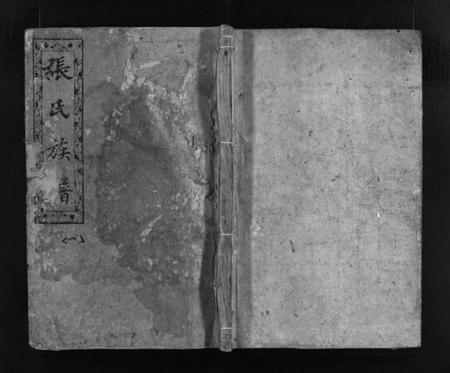 張氏族普
(一)